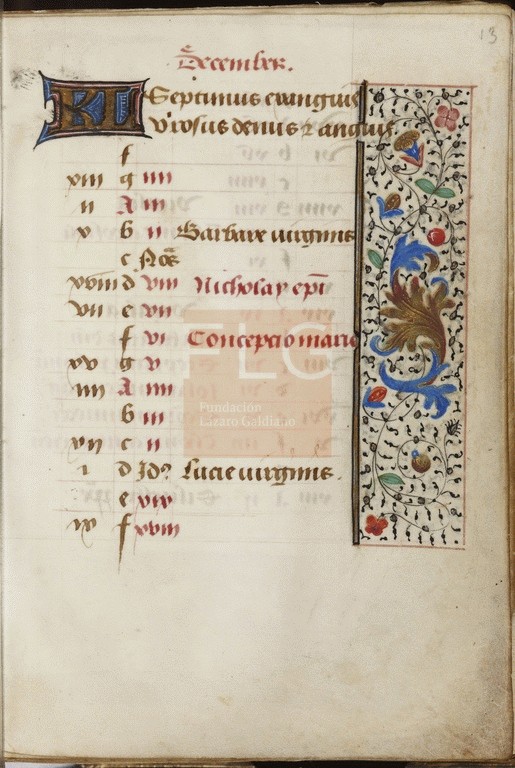 13
December.
KL Septimus exanguis
virosus denus ⁊ anguis.
f
xiii g iiii
ii A iii
x b ii Barbare virginis
c Noͣs
xviii d viii Nicholay epī
vii e vii
f vi Concepcio marie
xv g v
iiii A iiii
b iii
xii c ii
i d Jdꝰ Lucie virginis.
e xix
ix f xviii
FLG
Fundación
Lázaro Galdiano